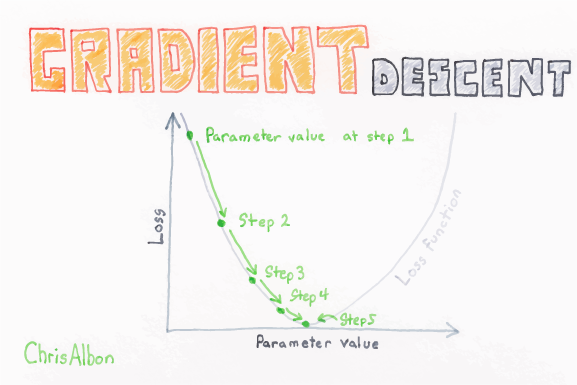 GRADIENT DESCENT
Parameter value at step 1
Step 2
Step 3
Step 4
Step 5
Loss
Loss function
Parameter value
ChrisAlbon